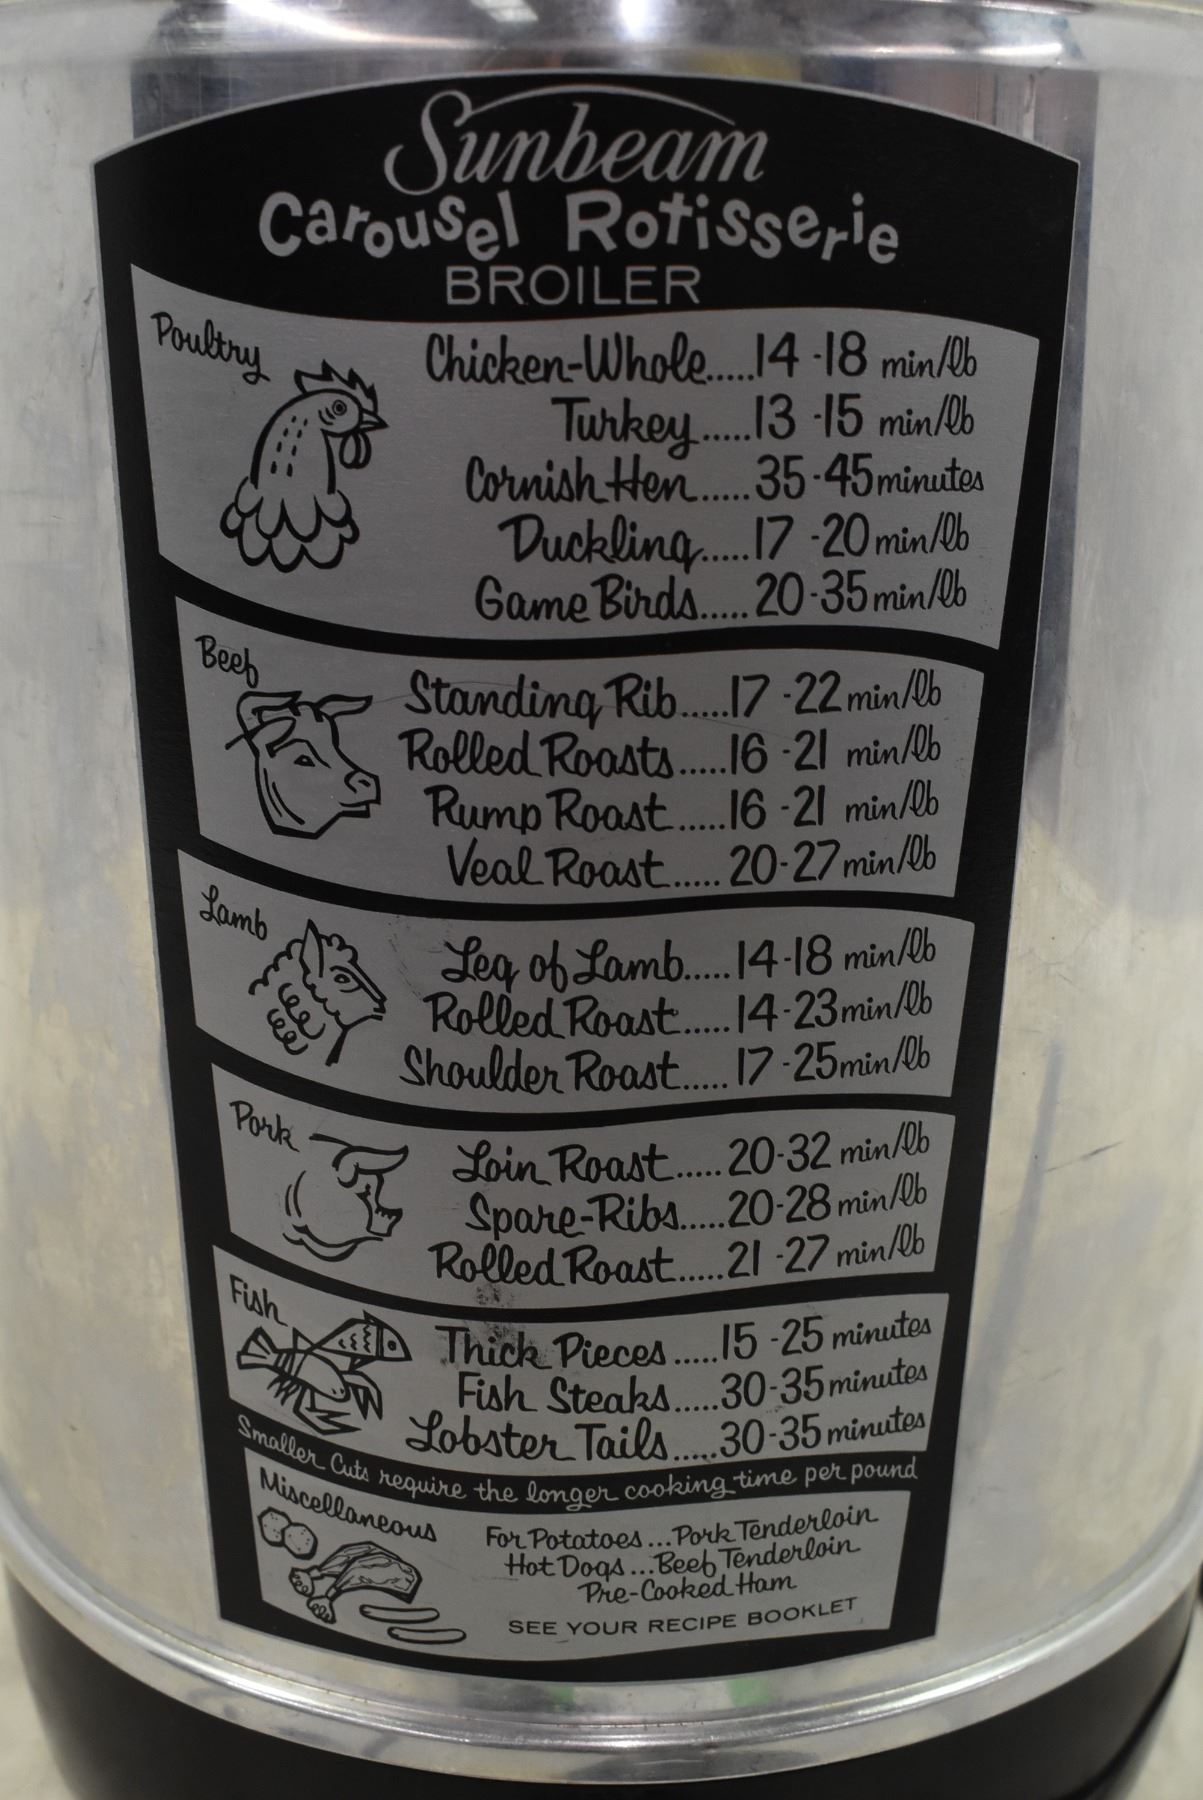 Sunbeam
Carousel Rotisserie
BROILER
Poultry
Chicken-Whole.....14-18 min/lb
Turkey.....13-15 min/lb
Cornish Hen.....35-45 minutes
Duckling.....17-20 min/lb
Game Birds.....20-35 min/lb
Beef
Standing Rib.....17-22 min/lb
Rolled Roasts.....16-21 min/lb
Rump Roast.....16-21 min/lb
Veal Roast.....20-27 min/lb
Lamb
Leg of Lamb.....14-18 min/lb
Rolled Roast.....14-23 min/lb
Shoulder Roast.....17-25 min/lb
Pork
Loin Roast.....20-32 min/lb
Spare-Ribs.....20-28 min/lb
Rolled Roast.....21-27 min/lb
Fish
Thick Pieces.....15-25 minutes
Fish Steaks.....30-35 minutes
Lobster Tails.....30-35 minutes
Smaller Cuts require the longer cooking time per pound
Miscellaneous
For Potatoes...Pork Tenderloin
Hot Dogs...Beef Tenderloin
Pre-Cooked Ham
SEE YOUR RECIPE BOOKLET